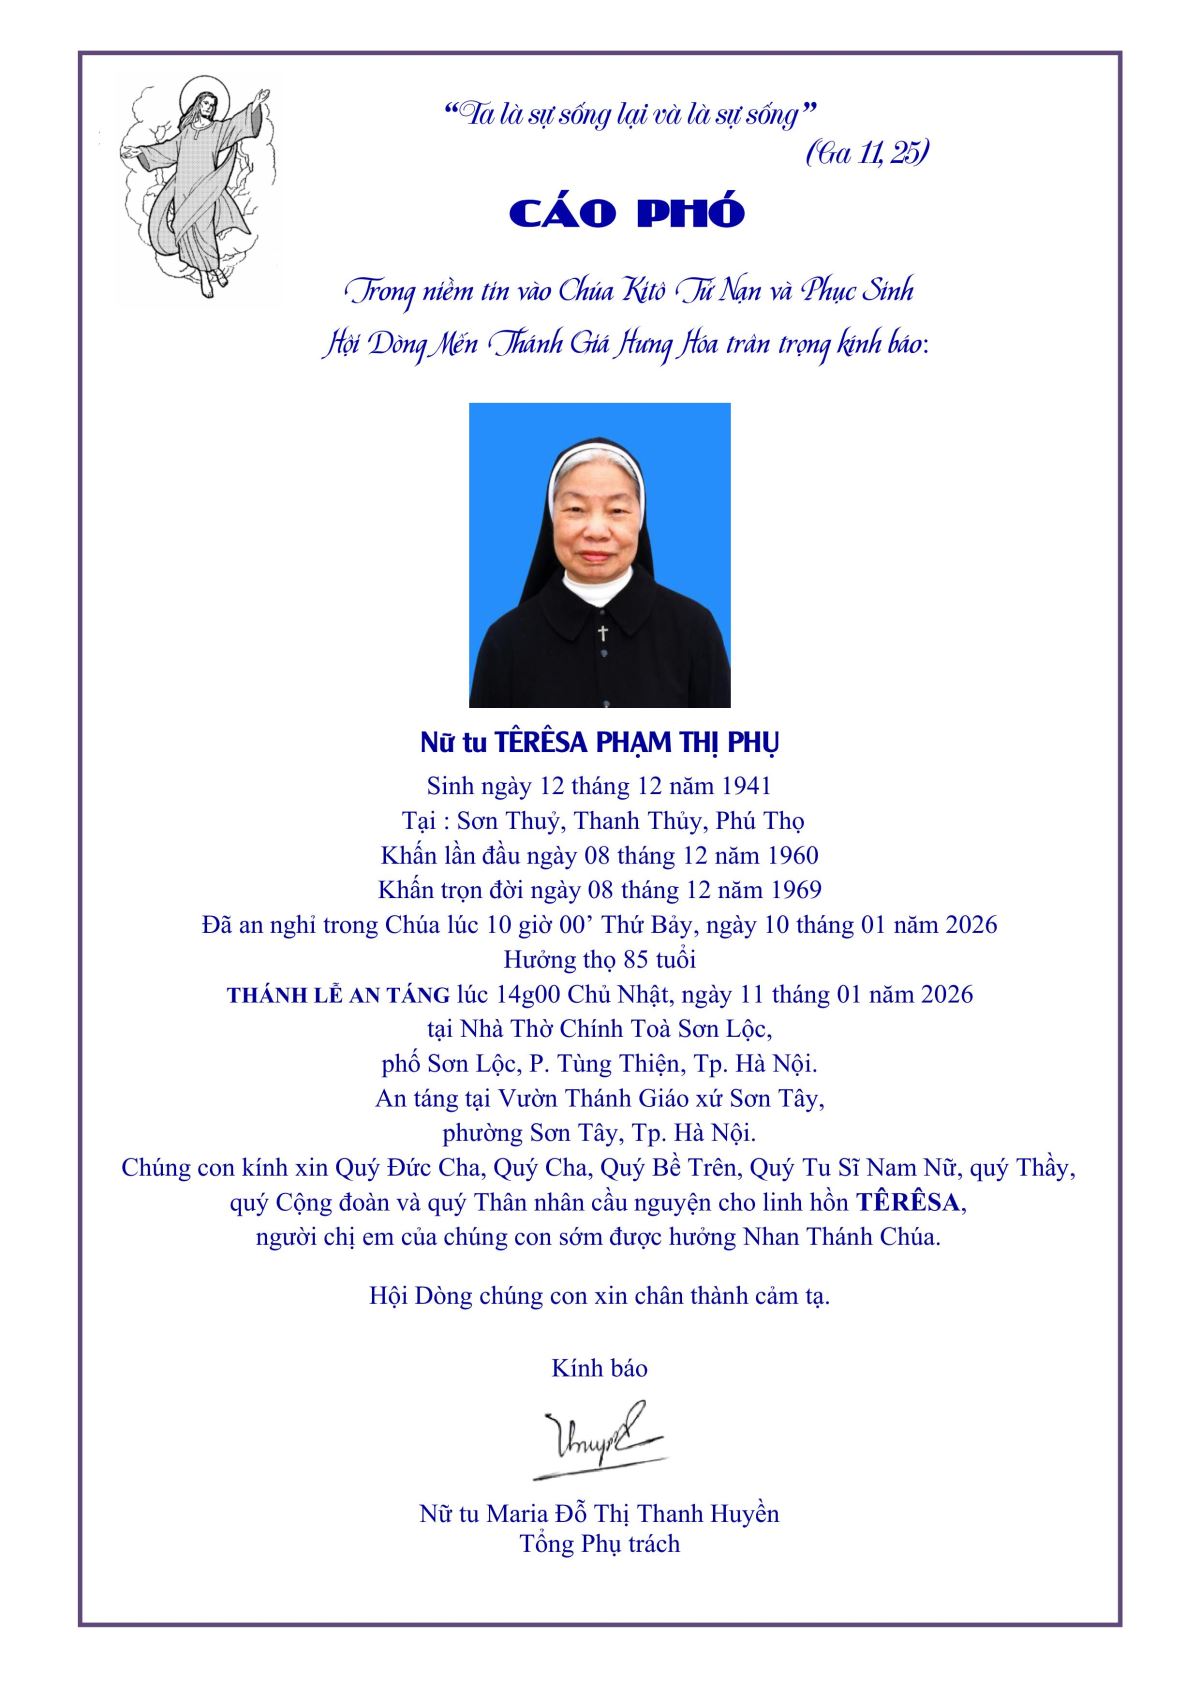 “Ta là sự sống lại và là sự sống”
(Ga 11, 25)
CÁO PHÓ
Trong niềm tin vào Chúa Kitô Tử Nạn và Phục Sinh
Hội Dòng Mến Thánh Giá Hưng Hóa trân trọng kính báo:
Nữ tu TÊRÊSA PHẠM THỊ PHỤ
Sinh ngày 12 tháng 12 năm 1941
Tại : Sơn Thuỷ, Thanh Thủy, Phú Thọ
Khấn lần đầu ngày 08 tháng 12 năm 1960
Khấn trọn đời ngày 08 tháng 12 năm 1969
Đã an nghỉ trong Chúa lúc 10 giờ 00’ Thứ Bảy, ngày 10 tháng 01 năm 2026
Hưởng thọ 85 tuổi
THÁNH LỄ AN TÁNG lúc 14g00 Chủ Nhật, ngày 11 tháng 01 năm 2026
tại Nhà Thờ Chính Toà Sơn Lộc,
phố Sơn Lộc, P. Tùng Thiện, Tp. Hà Nội.
An táng tại Vườn Thánh Giáo xứ Sơn Tây,
phường Sơn Tây, Tp. Hà Nội.
Chúng con kính xin Quý Đức Cha, Quý Cha, Quý Bề Trên, Quý Tu Sĩ Nam Nữ, quý Thầy,
quý Cộng đoàn và quý Thân nhân cầu nguyện cho linh hồn TÊRÊSA,
người chị em của chúng con sớm được hưởng Nhan Thánh Chúa.
Hội Dòng chúng con xin chân thành cảm tạ.
Kính báo
Nữ tu Maria Đỗ Thị Thanh Huyền
Tổng Phụ trách